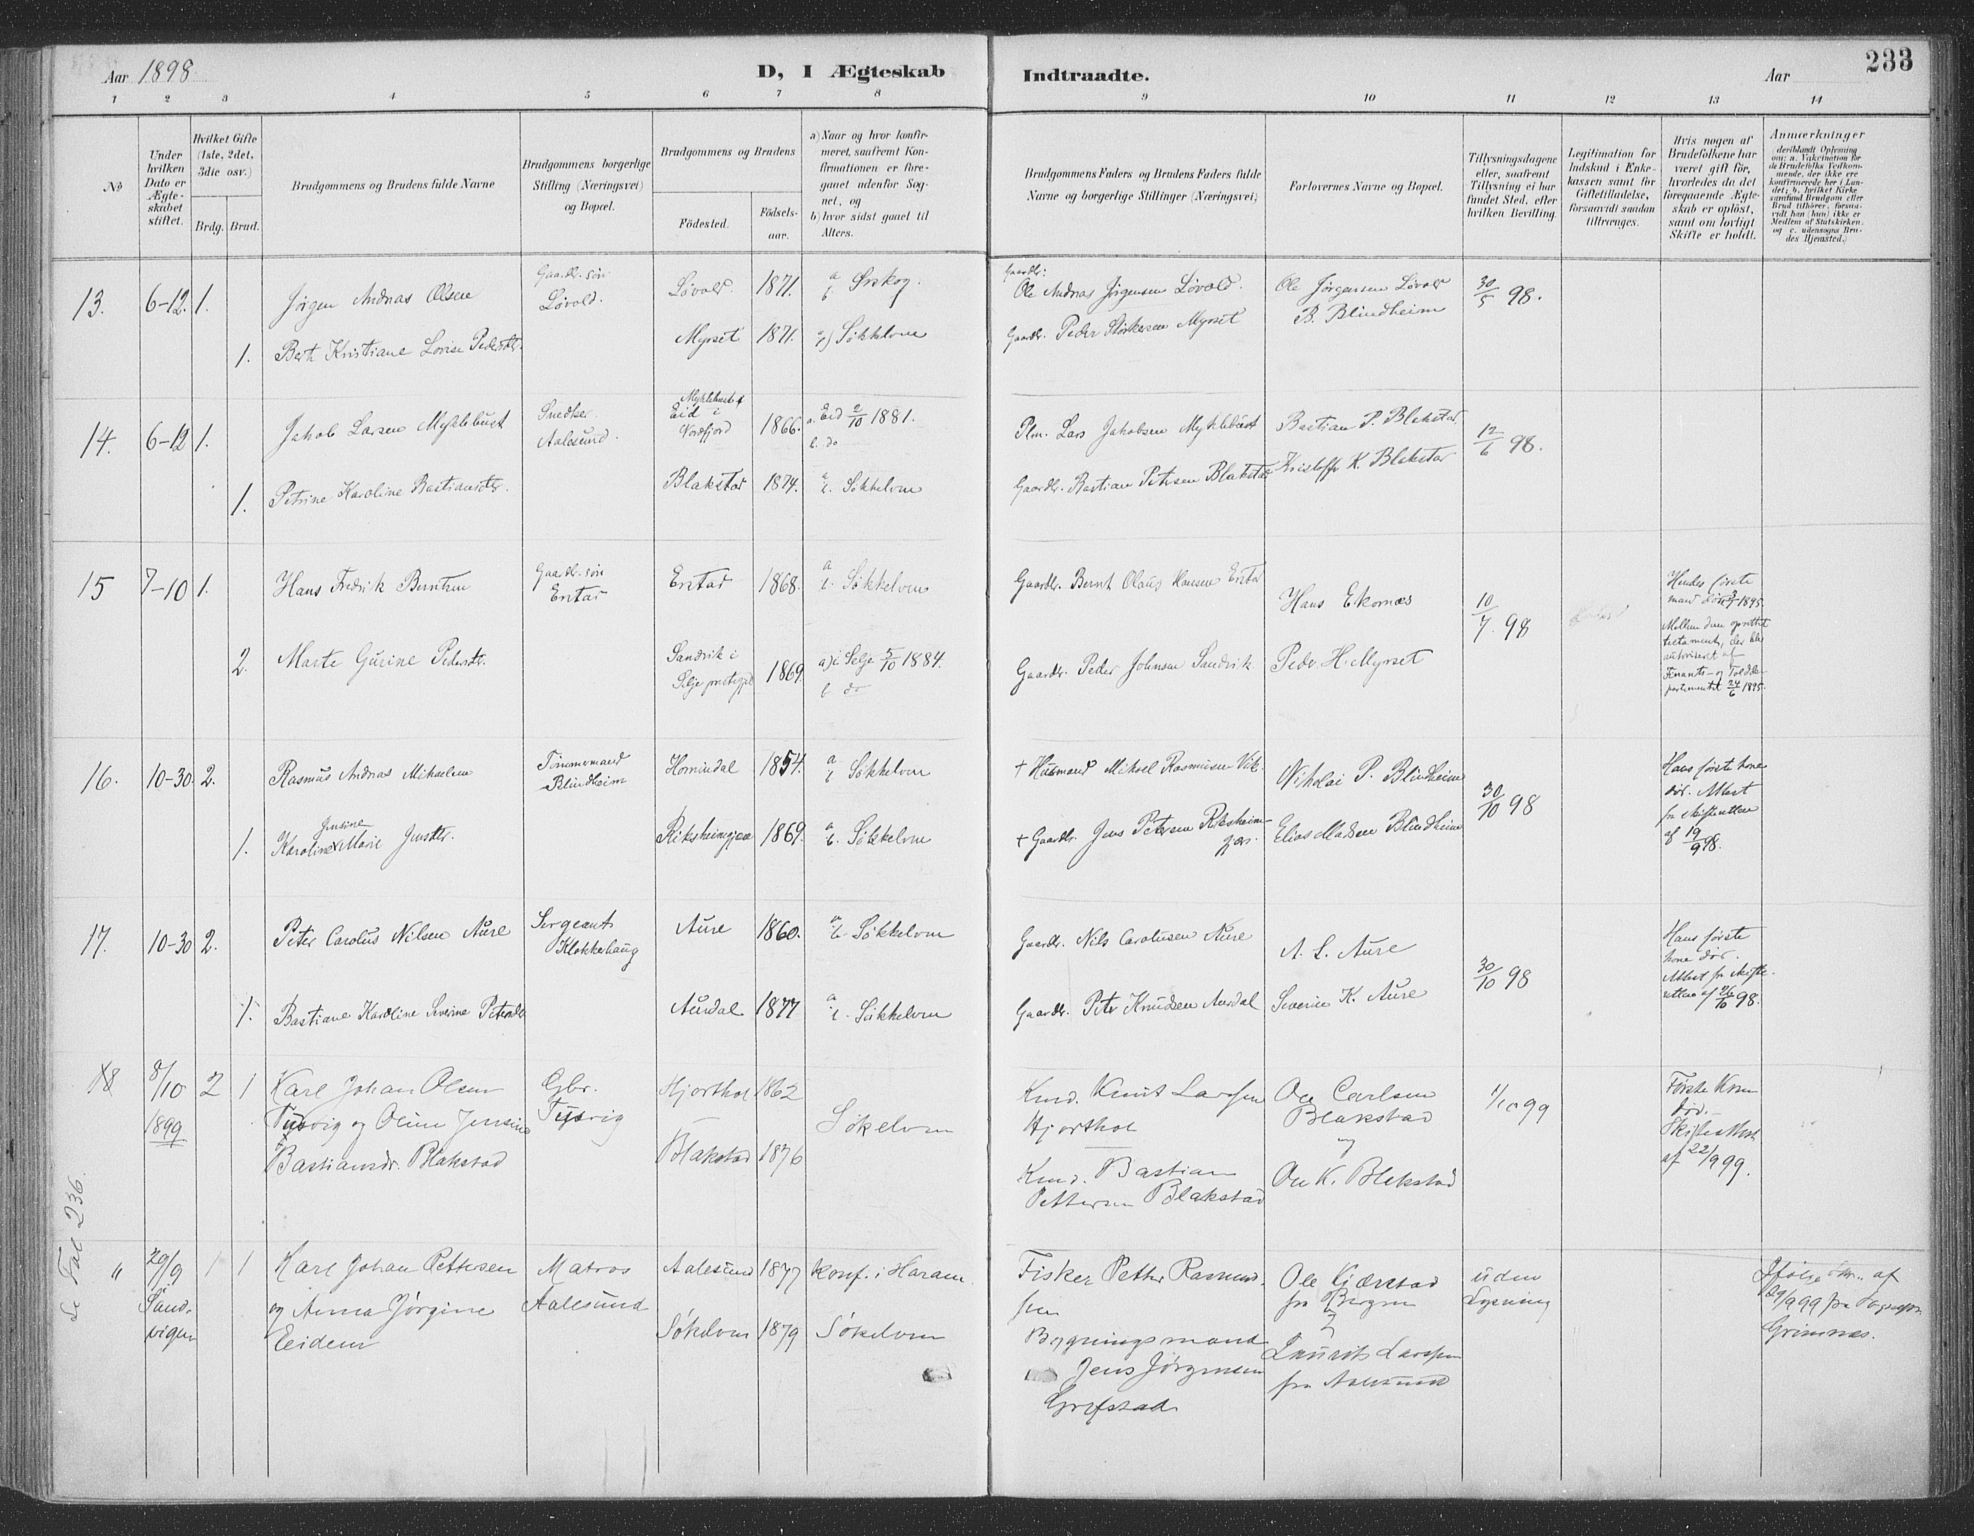 Aar 1898
D, I Ægteskab
Indtraadte.
Aar
233
1 2 3 4 5 6 7 8 9 10 11 12 13 14
No
Under hvilken Dato er Ægteskabet stiftet.
Hvilket Gifte (1ste, 2det, 3die osv.)
Brdg. Brud.
Brudgommens og Brudens fulde Navne
Brudgommens borgerlige Stilling (Næringsvei) og Bopæl.
Brudgommens og Brudens
Fødested.
Fødselsaar.
a) Naar og hvor konfirmeret, saafremt Konfirmationen er foregaaet udenfor Sognet, og
b) hvor sidst gaaet til Alters.
Brudgommens Faders og Brudens Faders fulde Navne og borgerlige Stillinger (Næringsvei)
Forlovernes Navne og Bopæl.
Tillysningsdagene eller, saafremt Tillysning ei har fundet Sted, efter hvilken Bevilling.
Legitimation for Indskud i Enkekassen samt for Giftetilladelse, forsaavidt saadan tiltrænges.
Hvis nogen af Brudefolkene har været gift før, hvorledes da det foregaaende Ægteskab er opløst, samt om lovligt Skifte er holdt.
Anmærkninger
13. 6-12. 1. Jørgen Andnas Olsen
Gaardbr. søn Løvold.
Løvold. 1871. a b Ørskog.
Gaardbr: Ole Andnas Jørgensen Løvold.
Ole Jørgensen Løvold
B. Blindheim
30/5 98.
1. Bert Kristiane Lovise Pedersdtr.
Myrset 1871. Søkkelven
Gaardbr. Peder Størkersen Myrset
14. 6-12 1. Jakob Larsen Myklebust
Snedker Aalesund.
Myklebust Eid i Nordfjord 1866. a. Eid 2/10 1881.
b. do
Plm. Lars Jakobsen Myklebust
Bastian P. Blakstad
Kristoffer K. Blakstad
12/6 98.
1. Petrine Karoline Bastiansdtr.
Blakstad 1874. a b. Søkkelven
Gaardbr. Bastian Petersen Blakstad
15 7-10 1. Hans Fredrik Berntsen
Gaardbr. søn Erstad
Erstad 1868. a b Søkkelven
Gaardbr. Bernt Olaus Hansen Erstad
Hans Ekornæs
Peder H. Myrset
10/7. 98
Hendes første
mand død 1895.
Mellem dem oprettet
testament, der blev
autoriseret af
Finants- og Toldde-
partementet 24/6 1895.
2. Marte Gurine Pedersdtr.
Sandvik i Selje prestegjeld 1869. a) i Selje 5/10 1884.
b do
Gaardbr. Peder Johnsen Sandvik
16. 10-30. 2. Rasmus Andnas Mikaelsen
Tømmermand Blindheim
Hornindal 1854. a b Søkkelven
+ Husmand Mikael Rasmussen Vik.
Nikolai P. Blindheim
Elias Madsen Blindheim
30/10 98
Hans første kone
død. Attest
fra skifteretten
af 19/9 98.
1. Karoline Jensine Marie Jensdtr.
Riksheimgjær 1869. a b. Søkkelven
+ Gaardbr. Jens Petersen Riksheim-
gjær.
17. 10-30 2. Peter Carolus Nilsen Aure
Sergeant Klokkerhaug
Aure 1860. a b. Søkkelven
Gaardbr. Nils Carolusen Aure
A. L. Aure
Severin K. Aure
30/10 98
Hans første
kone død.
Attest fra skifte-
retten af 26/10 98.
1. Bastiane Karoline Severine Petersdtr
Aurdal 1877 a b. Søkkelven
Gaardbr. Peter Knudsen Aurdal
18 8/10 1899 2 1 Karl Johan Olsen
Tusvig og Oline Jensine
Bastiansdr. Blakstad
Gbr. Tusvig
Hjorthol 1862
Blakstad 1876
Søkelven
Kmd. Knut Larssen
Hjorthol
Kmd. Bastian
Pettersen Blakstad
Ole Carlsen
Blakstad
og
Ole K. Blakstad
1/10 99
Første Kone
død.
Skifteattest
af 22/9 99.
Se Fol 236.
" 29/9 Sandvigen 1 1 Karl Johan Pettersen
og Anna Jørgine
Eidem
Matros
Aalesund
Aalesund 1877 Konf. i Haram
Søkelven 1879 Søkelven
Fisker Petter Rasmus-
sen
Bygningsmand
Jens Jørgensen
Grefstad
Ole Gjærstad
fra Bergen
Lauritz Larssen
fra Aalesund
uden
Lysning
Ifølge af
29/9 99 fra
Grimnæs.